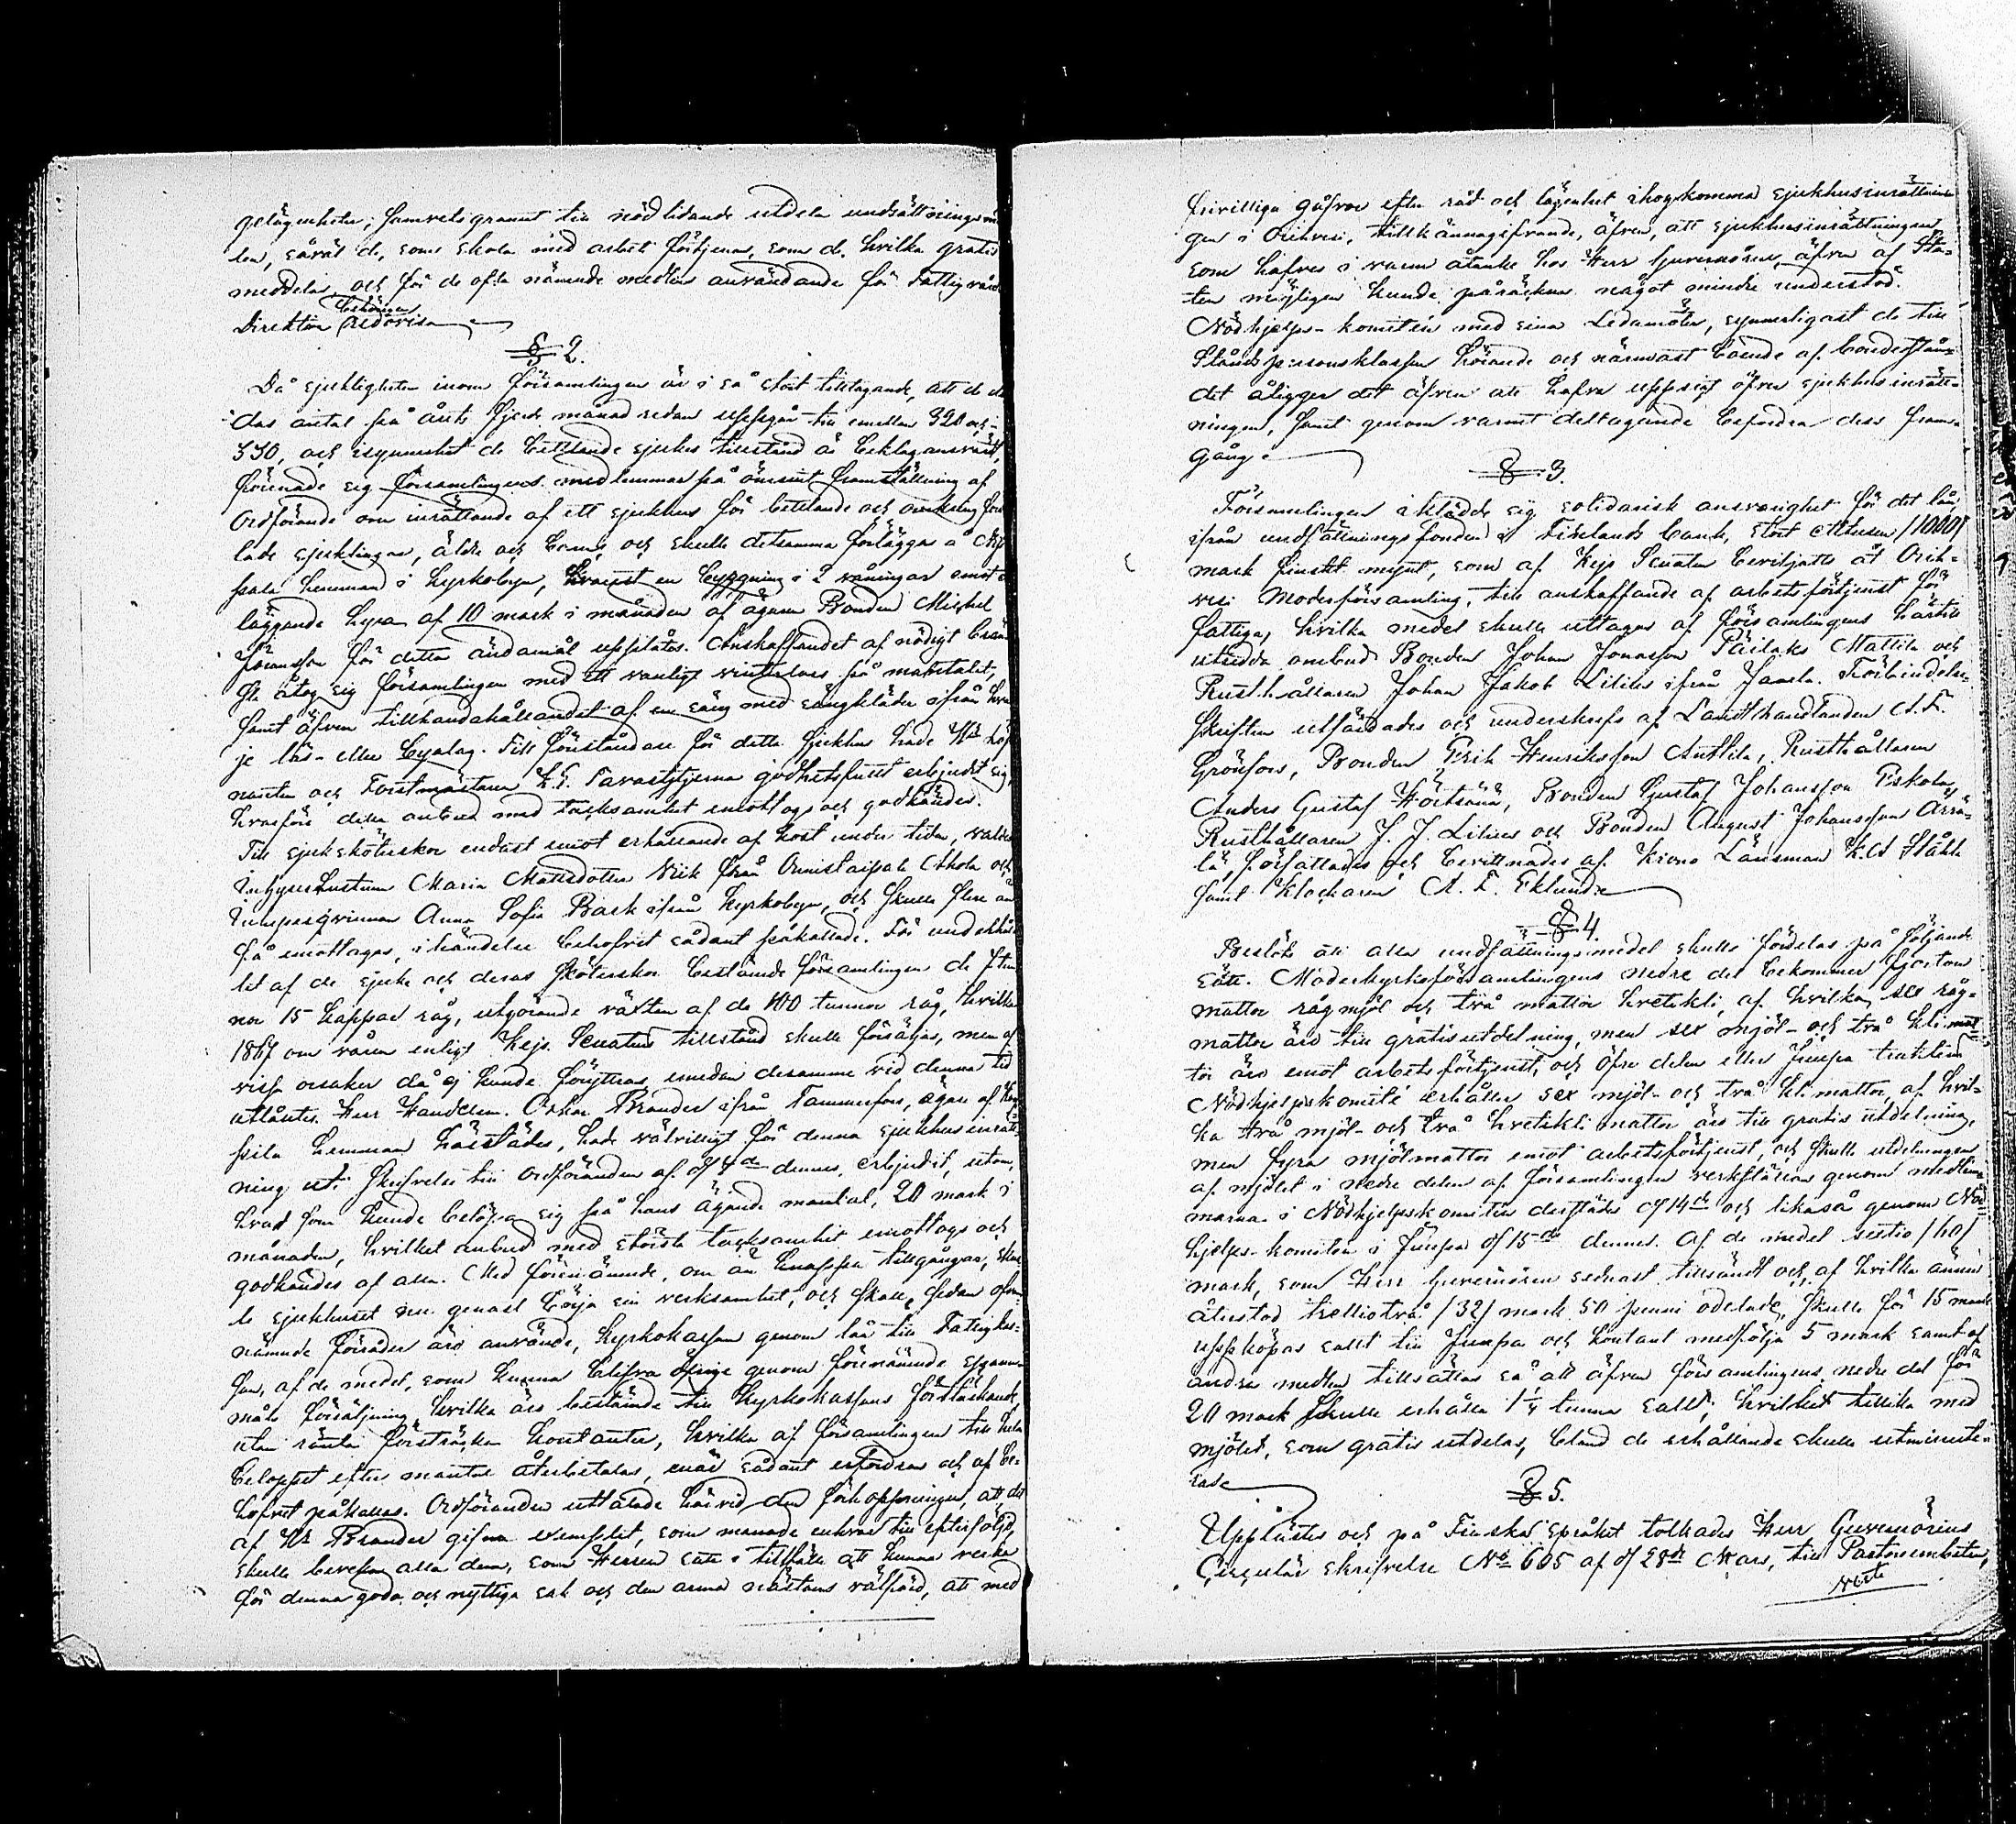 gelägenheter; samvetsgrannt till nödlidande utdela undsättningsme
len, såväl de, som skola med arbete förtjenas, som de, hvilka gratis
meddelas, och för de ofta nämnde medlens användande för Fattigvårds
behörigen
Direktion redovisa
§ 2.
Då sjukligheten inom församlingen är i så stort tilltagande, att de dö
das antal på årets fjerde månad redan uppgår till emellan 320 och
330, och isynnerhet de bettlande sjukes tillstånd är beklagansvärdt,
förenade sig församlingens medlemmar på ömsint framställning af
Ordförande om inrättande af ett sjukhus för bettlande och
lade sjuklingar, äldre och barn, och skulle detsamma förläggas å
pala hemman i Kyrkobyn, hvarest en byggning i 2 våningar emot er
läggande hyra af 10 mark i månaden af ägaren Bonden Michel
Jöransson för detta ändamål uppläts. Anskaffandet af nödigt brän
sle åtog sig församlingen med ett vanligt vinterlass på mantalet,
samt äfven tillhandahållandet af en säng med sängkläder ifrån hvar
je läs- eller byalag. Till föreståndare för detta sjukhus hade Hr Löjt
nanten och Forstmästaren L. G. Tavaststjerna godhetsfullt erbjudit sig,
hvarföre detta anbud med tacksamhet emottogs och godkändes.
Till sjuksköterskor endast emot erhållande af kost under tiden, valdes
Inhyseshustrun Maria Mattsdotter Vik från Onnistaipale Ahola och
Inhysesqvinnan Anna Sofia Bask ifrån Kyrkobyn, och skulle flere än
så emottagas, i händelse behofvet sådant påkallade. För underhål
let af de sjuke och deras sköterskor bestämde församlingen de ttun
nor 15 kappar råg, utgörande växten af de 100 tunnor råg, hvilka
1867 om våren enligt Kejs. Senatens tillstånd skulle försäljas, men af
vissa orsaker då ej kunde föryttras, emedan desamma vid denna tid
utlåntes. Herr Handelsm. Oskar Brander ifrån Tammerfors, ägare af
pila hemman härstädes, hade välvilligt för denna sjukhusinrätt
ning uti skrifvelse till ordföranden af d. 4de dennes, erbjudit, utom
hvad som kunde belöpa sig på hans ägande mantal, 20 mark i
månaden, hvilket anbud med största tacksamhet emottogs och
godkändes af alla. Med förenämnde, om än knappa tillgångar, skul
le sjukhuset nu genast börja sin verksamhet, och skulle, sedan ofvan
nämnde förråder äro använde, Kyrkokassan genom lån till Fattigkas
san, af de medel, som kunna blifva öfrige genom förenämnde spanne
måls försäljning, hvilka äro bestämde till Kyrkokassans förstärkande
utan ränta försträcka kontanter, hvilka af församlingen till hela
beloppet efter mantal återbetalas, enär sådant erfordras och af be-
hofvet påkallas. Ordföranden uttalade härvid den förhoppningen, att det
af Hr Brander gifna exemplet, som manade enhvar till efterföljd,
skulle bevepa alla dem, som Herren satt i tillfälle att kunna verka
för denna goda och nyttiga sak och den arma nästans välfärd, att med
frivilliga gåfvor efter råd och lägenhet ihogkomma sjukhusinrättnin
gen i Orihvesi, tillkännagifvande, äfven, att sjukhusinrättningen
som hafves i varm åtanke hos Herr Guvernören, äfven af Sta-
ten möjligen kunde påräkna något mindre understöd.
Nödhjelps-komitén med sina Ledamöter, synnerligast de till
Ståndspersonsklassen hörande och närmast boende af bondestån-
det åligger det äfven att hafva uppsigt öfver sjukhusinrätt-
ningen, samt genom varmt deltagande befordra dess fram-
gång.
§ 3.
Församlingen iklädde sig solidarisk ansvarighet för det lån,
ifrån undsättningsfonden i Finlands bank, stort Ettusen /1000/
mark finskt mynt, som af Kejs Senaten beviljatts åt Orih-
vesi Moderförsamling, till anskaffande af arbetsförtjenst för
fattige, hvilka medel skulle uttagas af församlingens härtill
utsedda ombud Bonden Johan Jonasson Päilaks Mattila och
Rusthållaren Johan Jakob Lilius ifrån Jaarla. Förbindelse
skriften utfärdades och underskrefs af Landthandlanden A. F.
Grönfors, Bonden Erik Henriksson Anttila, Rusthållaren
Anders Gustaf Hörtsänä, Bonden Gustaf Johansson Pskola,
Rusthållaren J. J. Lilius och Bonden August Johansson Ärrä-
lä, författades och bevittnades af Krono Länsman K. A Ståhle
samt Klockaren A. F. Eklund.
§ 4.
Beslöts att alla undsättningsmedel skulle fördelas på följande
sätt. Moderkyrkoförsamlingens nedre del bekommer fjorton
mattor rågmjöl och två mattor hvetekli, af hvilka sex råg-
mattor äro till gratis utdelning, men sex mjöl- och två klimat-
tor äro emot arbetsförtjenst, och öfre delen eller Juupa traktens
Nödhjelpskomité erhåller sex mjöl- och två klimattor, af hvil-
ka två mjöl- och två hvetekli mattor äro till gratis utdelning,
men fyra mjölmattor emot arbetsförtjenst, och skulle utdelningen
af mjölet i nedre delen af församlingen verkställas genom medlem-
marna i Nödhjelpskomitén derstädes d. 14de och likaså genom Nöd-
hjelps-komitén i Juupa d. 15de dennes. Af de medel sextio /60/
mark, som Herr Guvernören sednast tillsändt och af hvilka ännu
återstod trettiotvå /32/ mark 50 penni odelade, skulle för 15 mark
uppköpas salt till Juupa och kontant medfölja 5 mark samt af
andra medlen tillsättas så att äfven församlingens nedre del för
20 mark skulle erhålla 1 1/4 tunna salt; hvilket tillika med
mjölet, som gratis utdelas, bland de erhållande skulle utminute-
rades
§ 5.
Upplästes och på Finska språket tolkades Herr Guvernörens
Circulär skrifvelse No 605 af d. 28de Mars, till Pastorsembetet,